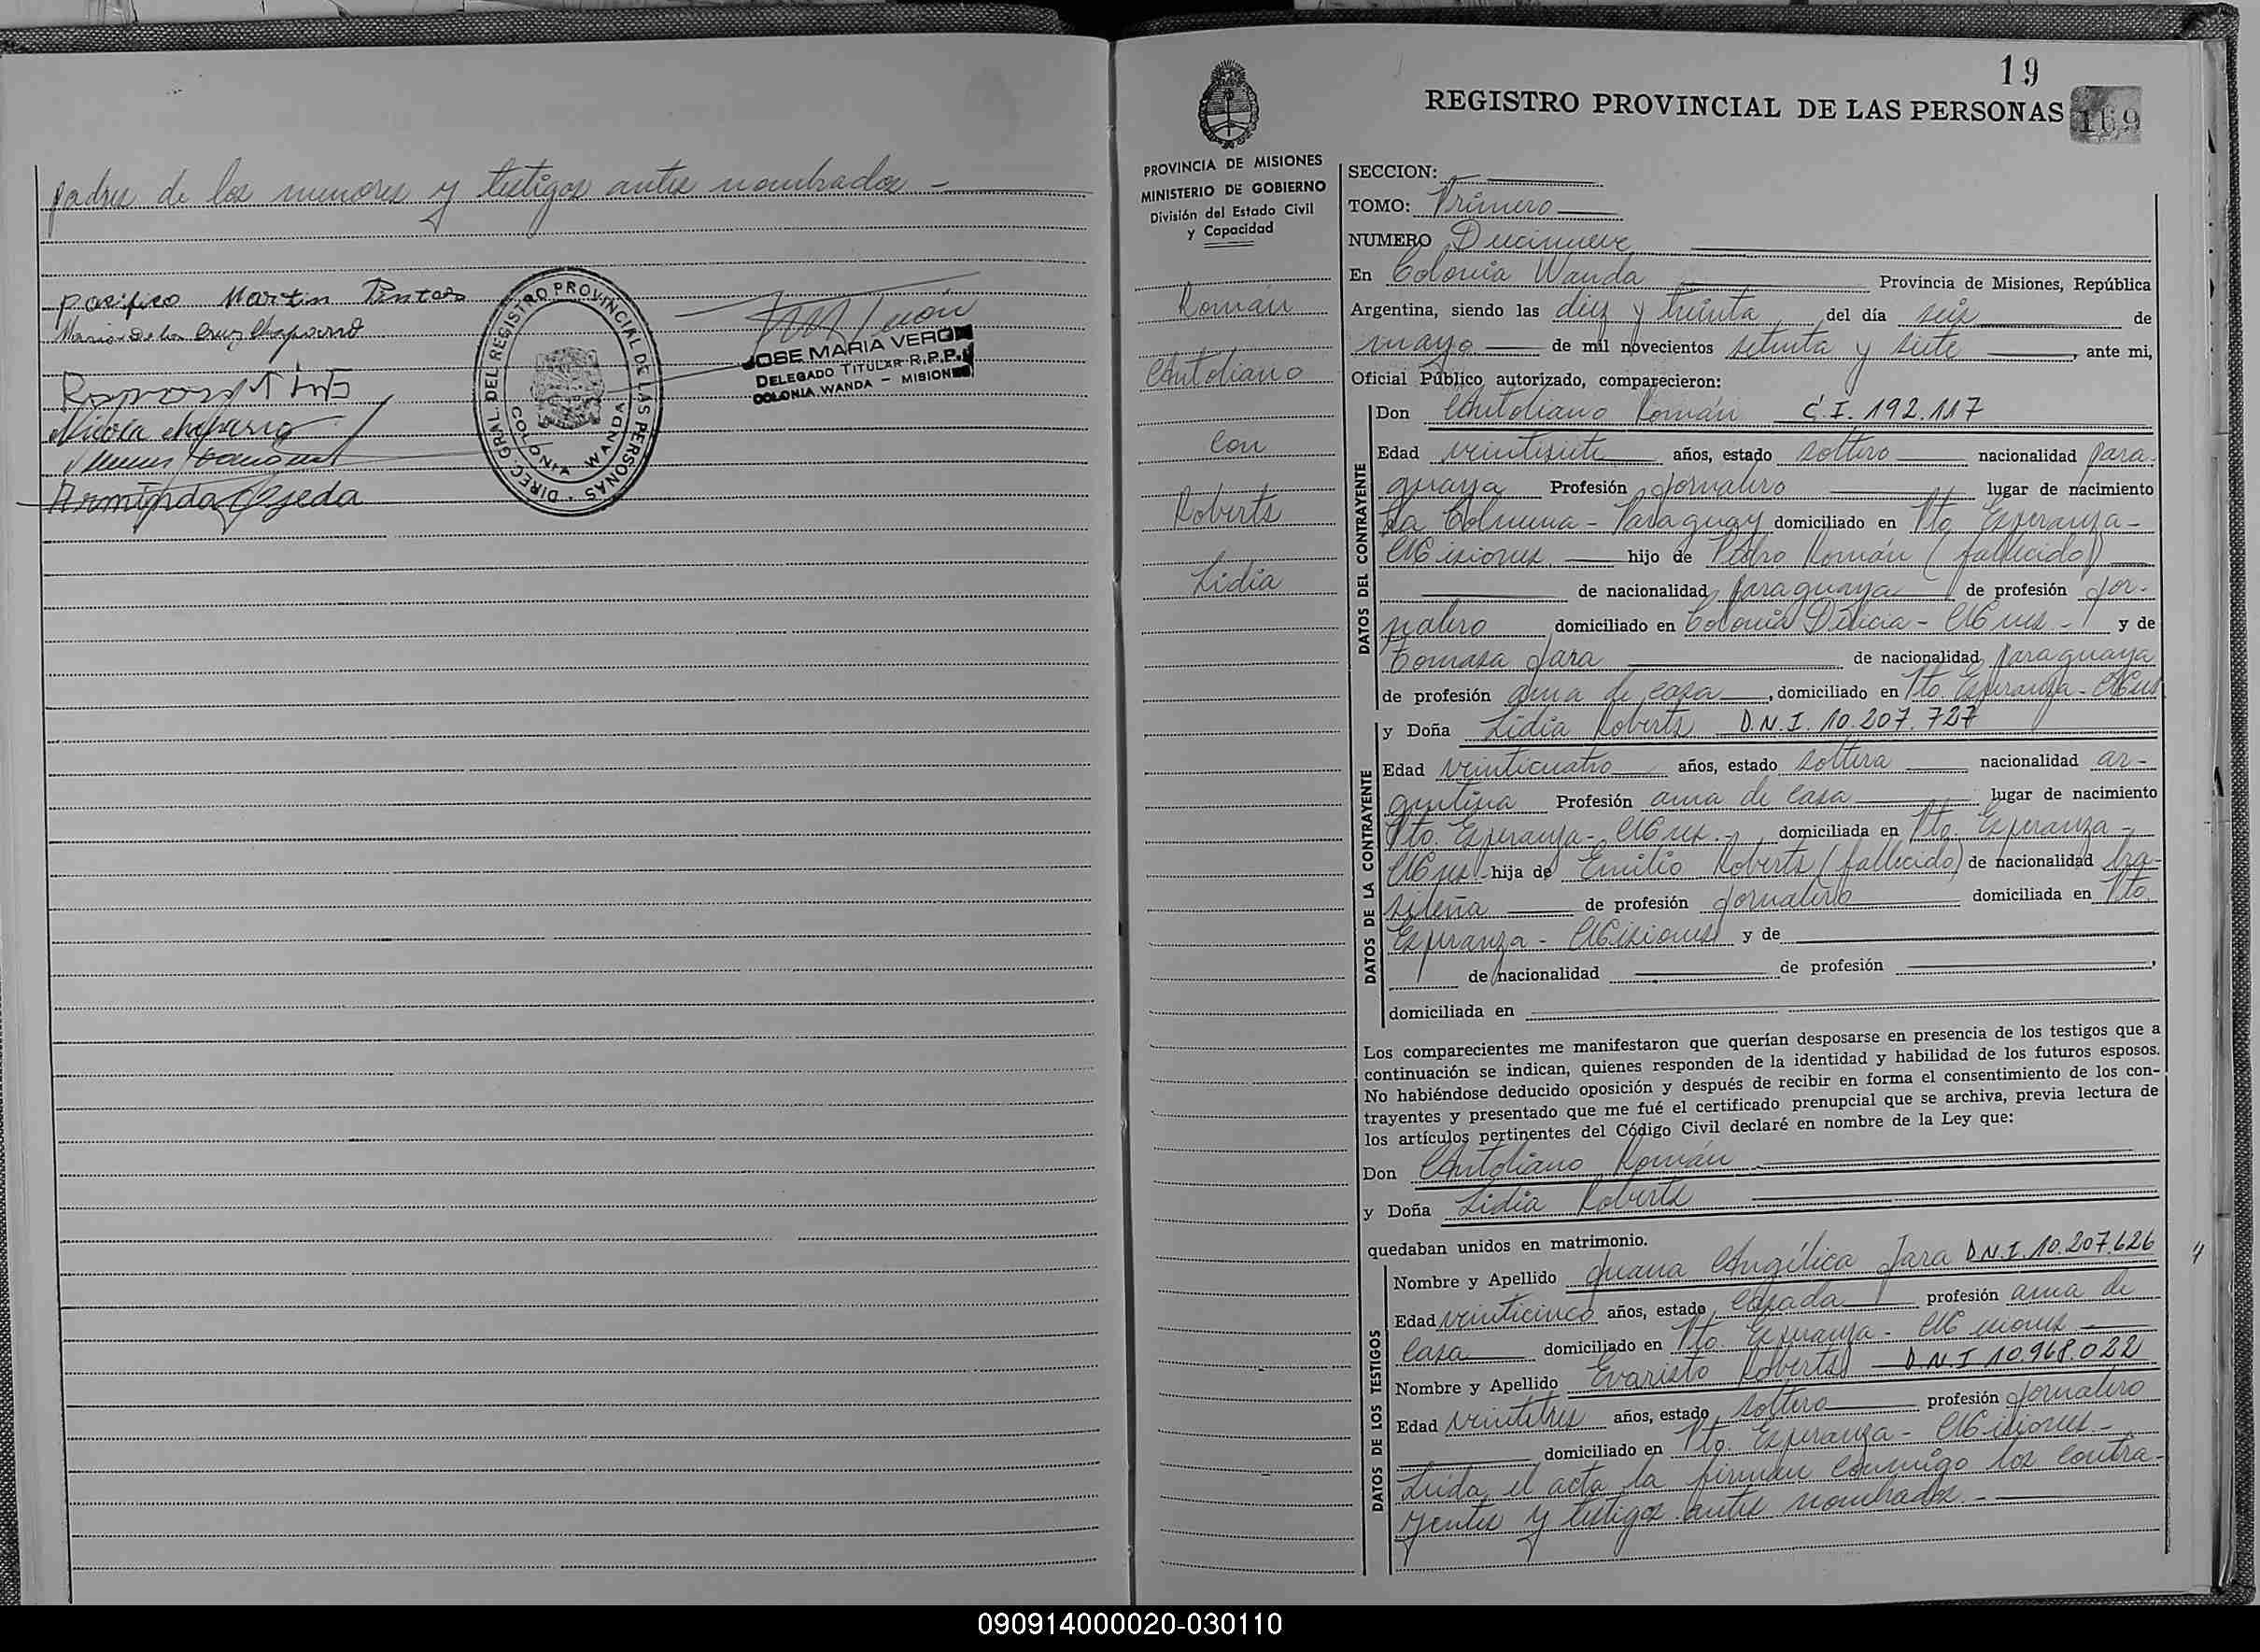 padres de los menores y testigos antes nombrados -
Pacífico Martin Pintos
Maria De la Cruz Chaparro
Nicola chaparro
Arminda Ojeda
DIREC. GRAL. DEL REGISTRO PROVINCIAL DE LAS PERSONAS
COLONIA WANDA
JOSE MARIA VERON
DELEGADO TITULAR R.P.P.
COLONIA WANDA - MISIONES
19
REGISTRO PROVINCIAL DE LAS PERSONAS
169
PROVINCIA DE MISIONES
MINISTERIO DE GOBIERNO
División del Estado Civil
y Capacidad
Román
Antoliano
con
Roberts
Lidia
SECCION:
TOMO: Primero
NUMERO Diecinueve
En Colonia Wanda Provincia de Misiones, República
Argentina, siendo las diez y treinta del día seis de
mayo de mil novecientos setenta y siete, ante mi,
Oficial Público autorizado, comparecieron:
DATOS DEL CONTRAYENTE
Don Antoliano Román C.I. 192.117
Edad veintisiete años, estado soltero nacionalidad para-
guaya Profesión jornalero lugar de nacimiento
La Colmena - Paraguay domiciliado en Pto. Esperanza -
Misiones hijo de Pedro Román (fallecido)
de nacionalidad paraguaya de profesión jor-
nalero domiciliado en Colonia Delicia - Mnes - y de
Tomasa Jara de nacionalidad paraguaya
de profesión ama de casa, domiciliado en Pto. Esperanza - Mnes
DATOS DE LA CONTRAYENTE
y Doña Lidia Roberts D.N.I. 10.207.727
Edad veinticuatro años, estado soltera nacionalidad ar-
gentina Profesión ama de casa lugar de nacimiento
Pto. Esperanza - Mnes. - domiciliada en Pto. Esperanza -
Mnes - hija de Emilio Roberts (fallecido) de nacionalidad bra-
sileña de profesión jornalero domiciliada en Pto.
Esperanza - Misiones y de
de nacionalidad de profesión ,
domiciliada en
Los comparecientes me manifestaron que querían desposarse en presencia de los testigos que a
continuación se indican, quienes responden de la identidad y habilidad de los futuros esposos.
No habiéndose deducido oposición y después de recibir en forma el consentimiento de los con-
trayentes y presentado que me fué el certificado prenupcial que se archiva, previa lectura de
los artículos pertinentes del Código Civil declaré en nombre de la Ley que:
Don Antoliano Román
y Doña Lidia Roberts
quedaban unidos en matrimonio.
DATOS DE LOS TESTIGOS
Nombre y Apellido Juana Angélica Jara D.N.I. 10.207.626
Edad veinticinco años, estado casada profesión ama de
casa domiciliado en Pto. Esperanza - Misiones -
Nombre y Apellido Evaristo Roberts D.N.I 10.968.022
Edad veintitres años, estado soltero profesión jornalero
domiciliado en Pto. Esperanza - Misiones -
Leída el acta la firman conmigo los contra-
yentes y testigos antes nombrados. -
090914000020-030110